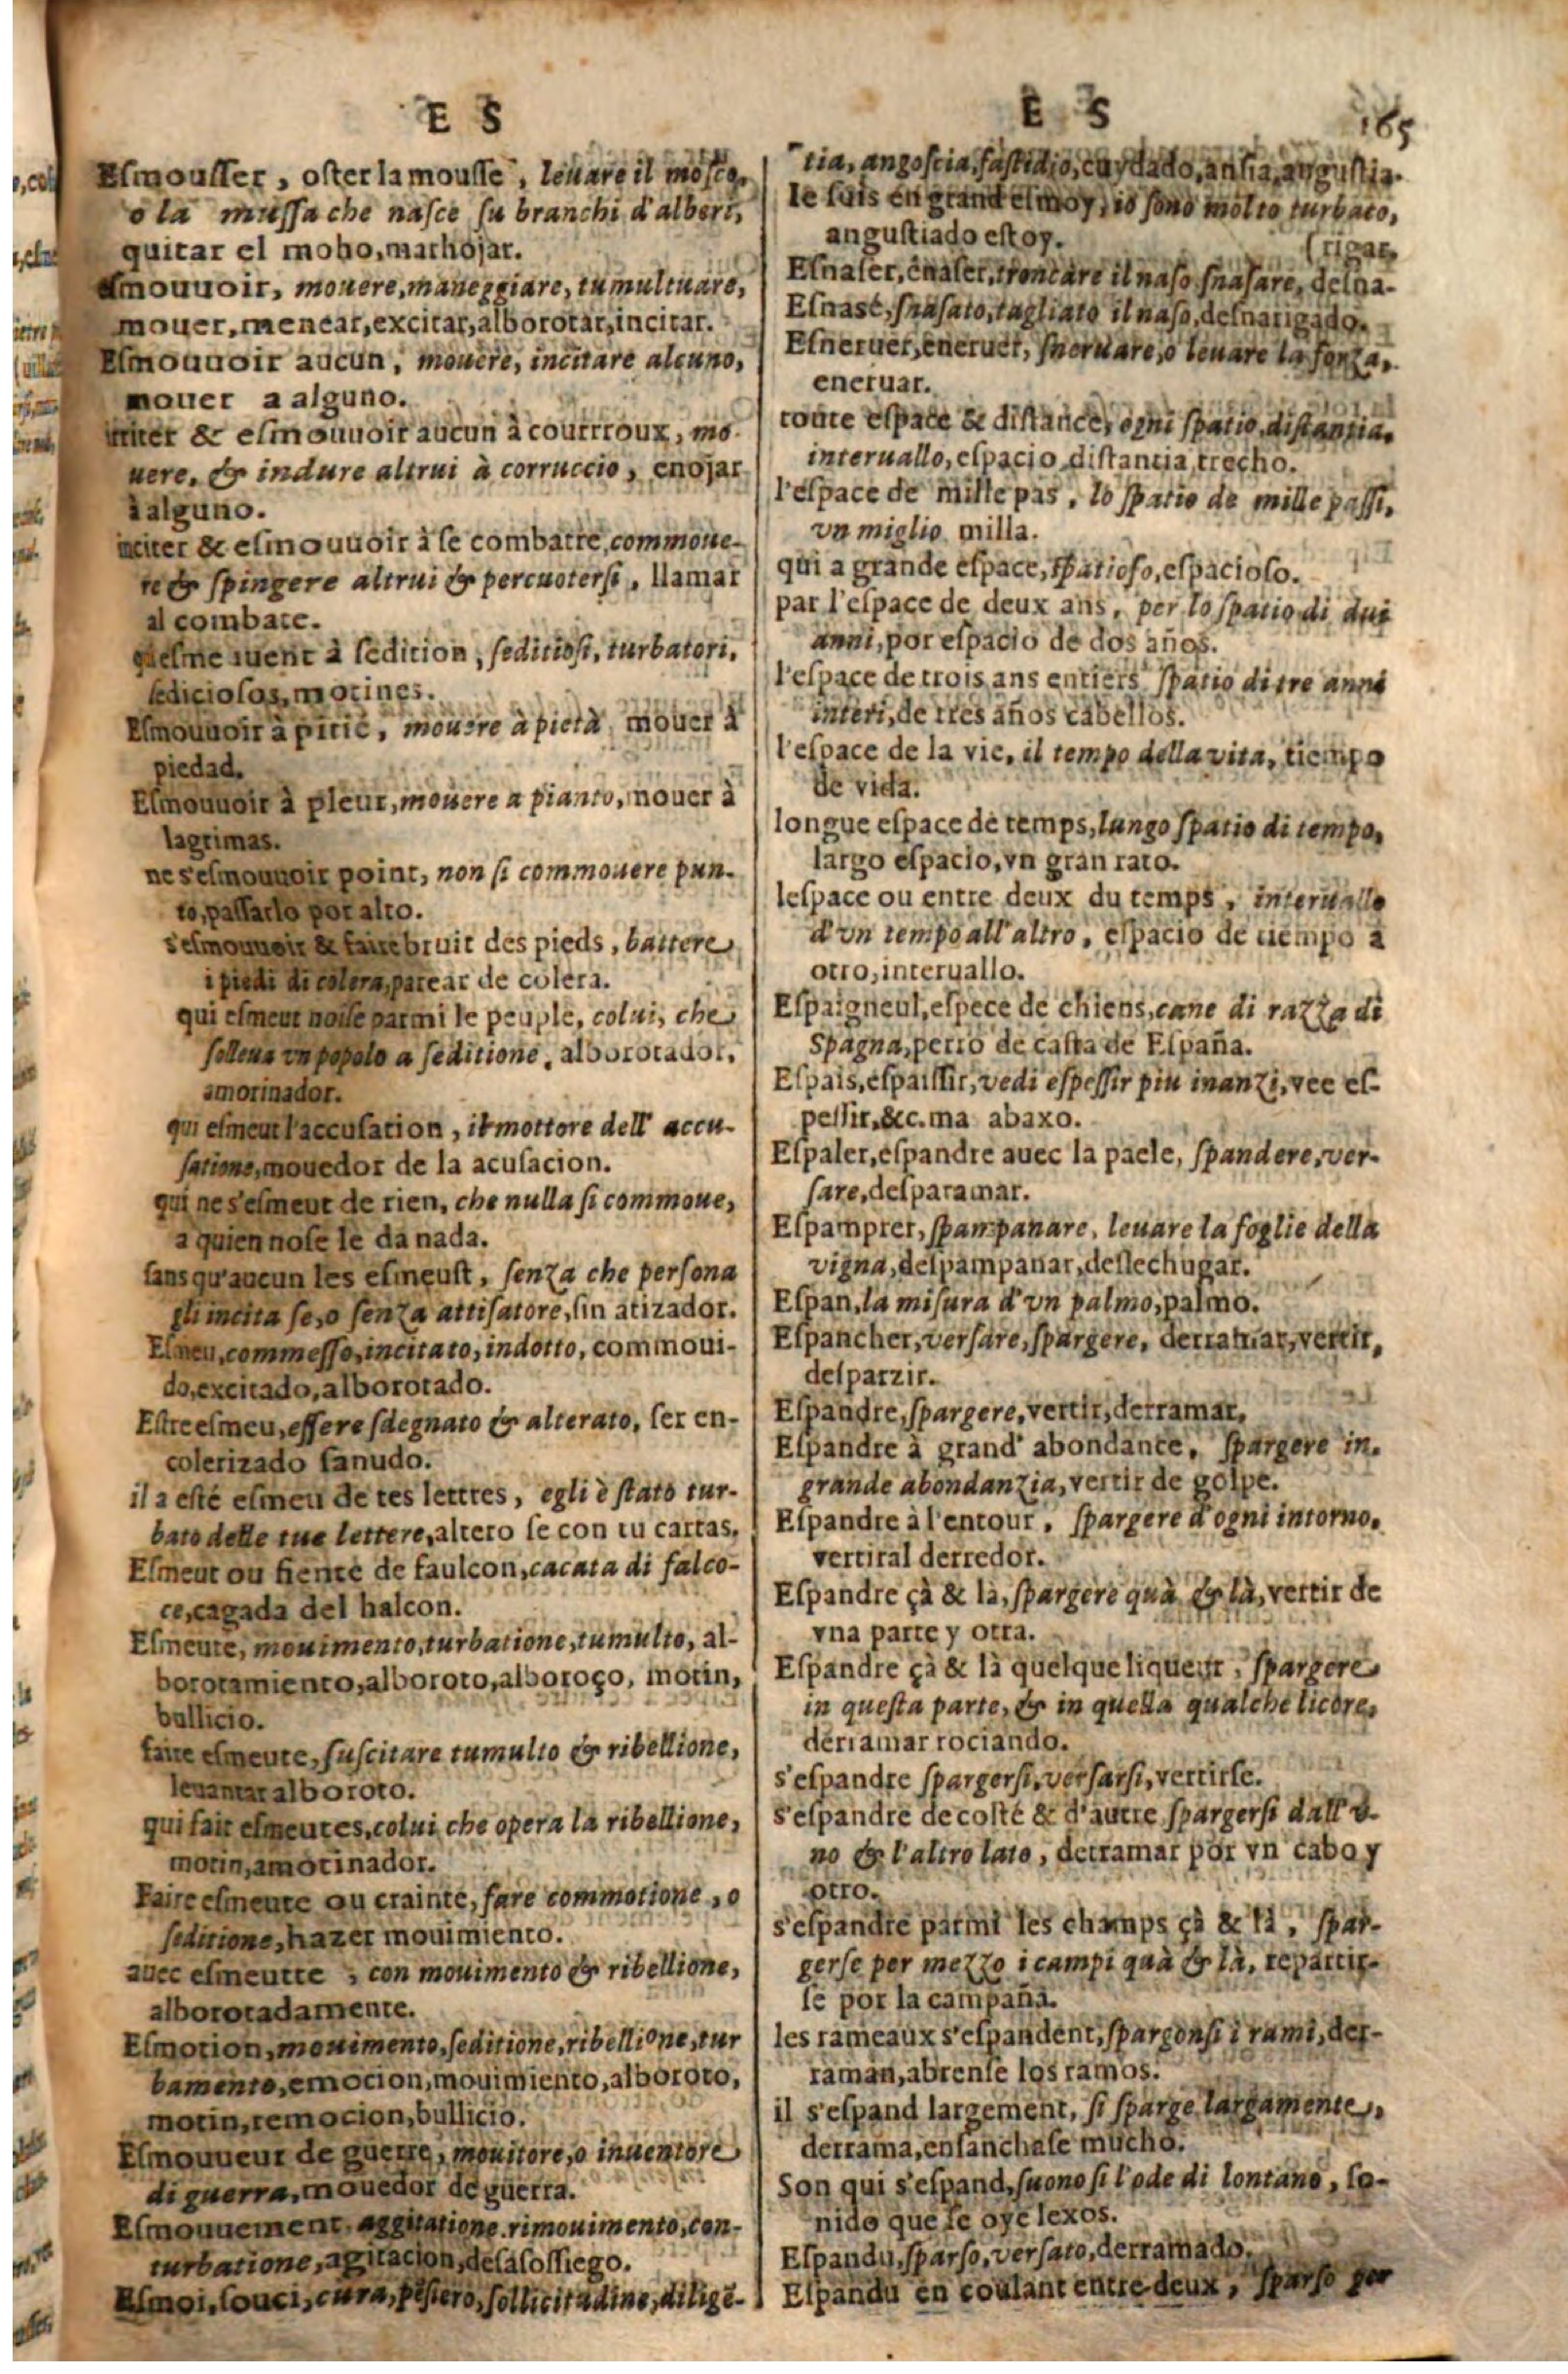 E S
Eſmouſſer, oſter la mouſſe, leuare il moſco,
o la muſſa che naſce ſu branchi d'alberi,
quitar el moho, marhojar.
eſmouuoir, mouere, maneggiare, tumultuare,
mouer, menear, excitar, alborotar, incitar.
Eſmouuoir aucun, mouere, incitare alcuno,
mouer a alguno.
irriter & eſmouuoir aucun à courrroux, mo-
uere, & indure altrui à corruccio, enojar
à alguno.
inciter & eſmouuoir à ſe combatre, commoue-
re & ſpingere altrui & percuoterſi, llamar
al combate.
qui eſme uuent à ſedition, ſeditioſi, turbatori,
ſedicioſos, motines.
Eſmouuoir à pitié, mouere à pietà, mouer à
piedad.
Eſmouuoir à pleur, mouere a pianto, mouer à
lagrimas.
ne s'eſmouuoir point, non ſi commouere pun-
to, paſſarlo por alto.
s'eſmouuoir & faire bruit des pieds, battere
i piedi di colera, patear de colera.
qui eſmeut noiſe parmi le peuple, colui, che
ſolleua vn popolo a ſeditione, alborotador,
amotinador.
qui eſmeut l'accuſation, il mottore dell' accu-
ſatione, mouedor de la acuſacion.
qui ne s'eſmeut de rien, che nulla ſi commoue,
a quien noſe le da nada.
ſans qu'aucun les eſmeuſt, ſenza che perſona
gli incita ſe, o ſenza attiſatore, ſin atizador.
Eſmeu, commeſſo, incitato, indotto, commoui-
do, excitado, alborotado.
Eſtre eſmeu, eſſere ſdegnato & alterato, ſer en-
colerizado ſanudo.
il a eſté eſmeu de tes lettres, egli è ſtato tur-
bato delle tue lettere, altero ſe con tu cartas.
Eſmeut ou fiente de faulcon, cacata di falco-
ce, cagada del halcon.
Eſmeute, mouimento, turbatione, tumulto, al-
borotamiento, alboroto, alboroço, motin,
bullicio.
faire eſmeute, ſuſcitare tumulto & ribellione,
leuantar alboroto.
qui fait eſmeutes, colui che opera la ribellione,
motin, amotinador.
Faire eſmeute ou crainte, fare commotione, o
ſeditione, hazer mouimiento.
auec eſmeutte, con mouimento & ribellione,
alborotadamente.
Eſmotion, mouimento, ſeditione, ribellione, tur
bamento, emocion, mouimiento, alboroto,
motin, remocion, bullicio.
Eſmouueur de guerre, mouitore, o inuentore
di guerra, mouedor de guerra.
Eſmouuement, aggitatione, rimouimento, con-
turbatione, agitacion, deſaſoſſiego.
Eſmoi, ſouci, cura, pēſiero, ſollicitudine, diligē-
E S
165
tia, angoſcia, faſtidio, cuydado, anſia, anguſtia.
Ie ſuis en grand eſmoy, io ſono molto turbato,
anguſtiado eſtoy.
(rigar,
Eſnaſer, énaſer, troncare il naſo ſnaſare, deſna-
Eſnasé, ſnaſato, tagliato il naſo, deſnarigado.
Eſneruer, eneruer, ſneruare, o leuare la forza,
eneruar.
toute eſpace & diſtance, ogni ſpatio, diſtantia,
interuallo, eſpacio diſtancia, trecho.
l'eſpace de mille pas, lo ſpatio de mille paſſi,
vn miglio milla.
qui a grande eſpace, ſpatioſo, eſpacioſo.
par l'eſpace de deux ans, per lo ſpatio di dui
anni, por eſpacio de dos años.
l'eſpace de trois ans entiers ſpatio di tre anni
interi, de tres años cabellos.
l'eſpace de la vie, il tempo della vita, tiempo
de vida.
longue eſpace de temps, lungo ſpatio di tempo,
largo eſpacio, vn gran rato.
leſpace ou entre deux du temps, interuallo
d'vn tempo all'altro, eſpacio de tiempo a
otro, interuallo.
Eſpaigneul, eſpece de chiens, cane di razza di
Spagna, perro de caſta de Eſpaña.
Eſpais, eſpaiſſir, vedi eſpeſſir piu inanzi, vee eſ-
peſſir, &c. ma abaxo.
Eſpaler, eſpandre auec la paele, ſpandere, ver-
ſare, deſparamar.
Eſpamprer, ſpampanare, leuare la foglie della
vigna, deſpampanar, deſlechugar.
Eſpan, la miſura d'vn palmo, palmo.
Eſpancher, verſare, ſpargere, derramar, vertir,
deſparzir.
Eſpandre, ſpargere, vertir, derramar.
Eſpandre à grand' abondance, ſpargere in.
grande abondanzia, vertir de golpe.
Eſpandre à l'entour, ſpargere d'ogni intorno,
vertiral derredor.
Eſpandre çà & là, ſpargere quà & là, vertir de
vna parte y otra.
Eſpandre çà & là quelque liqueur, ſpargere
in queſta parte, & in quella qualche licore,
derramar rociando.
s'eſpandre ſpargerſi, verſarſi, vertirſe.
s'eſpandre de coſté & d'autre ſpargerſi dall' v-
no & l'altro lato, derramar por vn cabo y
otro.
s'eſpandre parmi les champs çà & là, ſpar-
gerſe per mezzo i campi quà & là, repartir-
ſe por la campaña.
les rameaux s'eſpandent, ſpargonſi i rami, der-
raman, abrenſe los ramos.
il s'eſpand largement, ſi ſparge largamente,
derrama, enſanchaſe mucho.
Son qui s'eſpand, ſuono ſi l'ode di lontano, ſo-
nido que ſe oye lexos.
Eſpandu, ſparſo, verſato, derramado.
Eſpandu en coulant entre-deux, ſparſo per